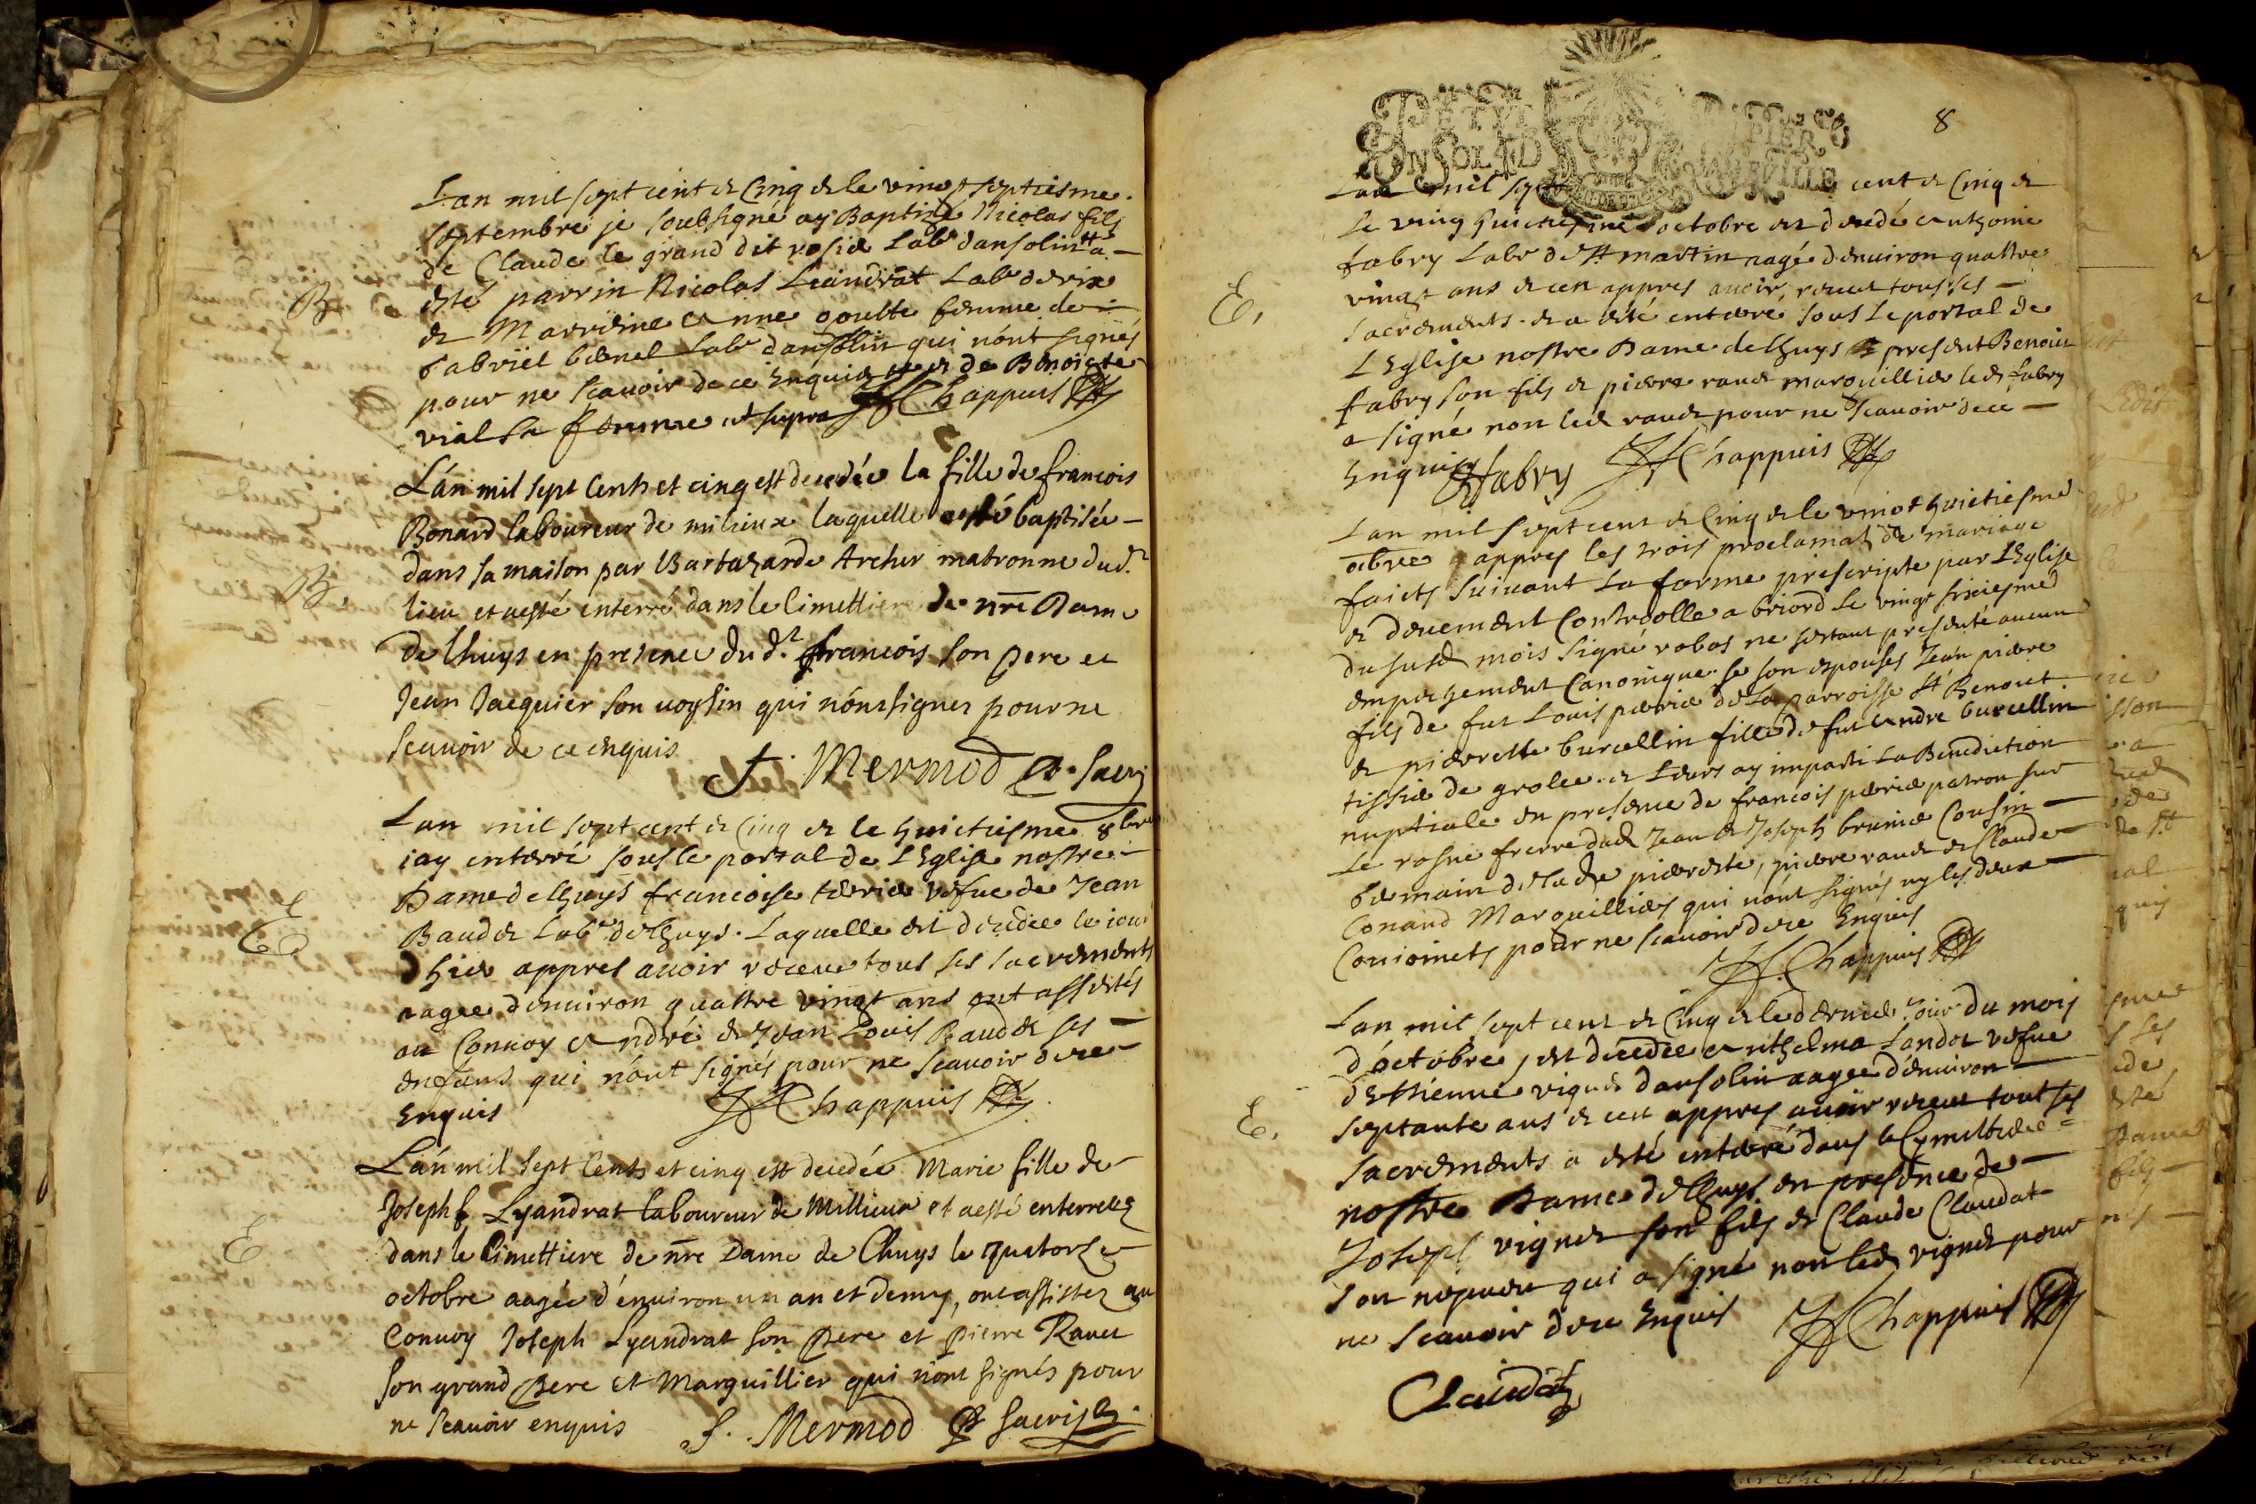 Lan mil sept cent & Cinq & le vingt septiesme
septembre je soubsigné ay Baptizé Nicolas fils
de Claude le grand dit rosier Labr dansolin & a
esté parrin Nicolas Leandrat Labr de rix
& Marreine Anne goutte femme de
gabriel bernel Labr dansolin qui nont signés
pour ne scavoir de ce Enquis & de Benoiste
vial sa femme ut supra Chappuis
B
Lán mil sept Cents et cinq est decedée la fille de francois
Bonard laboureur de milieux laquelle a esté baptisée
dans sa maison par Archer matronne dud.
lieu et aesté enterré dans le Cimettiere de nre Dame
de lhuys en presence du d. francois son pere et
Jean Jacquier son voysin qui nónt signer pour ne
scavoir de ce enquis
B.
f. Mermod
Lan mil sept cent & Cinq & le huictiesme 8bre
iay enterré sous le portal de LEglise nostre
Dame de lhuys francoise terrier vefue de Jean
Baudet Labr de lhuys. Laquelle est decedée le iour
hier appres avoir receue tous ses sacrements
aagee denuiron quattre vingt ans ont assistés
au Convoy Andre & Jean Louis Baudet ses
enfans qui nónt signés pour ne scavoir de ce
Enquis Chappuis
E
Lán mil sept Cents et cinq est decedée Marie fille de
Joseph Lyandrat laboureur de Millieux et aesté enterreez
dans le Cimettiere de nre Dame de Lhuys le quatorze
octobre aagée d'énuiron un an et demy, ont assistez au
Convoy Joseph Lyandrat son Pere et Pierre Ravet
son grand Pere et Marguillier qui nónt signés pour
ne scavoir enquis f. Mermod
E
PETIT PAPIER
8
Lan mil sept cent & Cinq &
le vingt huictiesme octobre est decedé Anthoine
fabry Labr de St martin aagé denuiron quattre
vingt ans & ce appres avoir receut tous ses
sacrements & a esté enterré sous le portal de
LEglise nostre Dame de lhuys presents Benoist
fabry son fils & pierre ravet marguillier led fabry
a signé non led ravet pour ne scavoir de ce
Enquis
E.
fabry Chappuis
Lan mil sept cent & Cinq & le vingt huictiesme
octbre appres les trois proclamats de mariage
faicts suivant la forme prescripte par LEglise
& deuement Controolle a briord le vingt sixiesme
du susd mois signé robas ne sestant presenté aucun
empechement Canonique. se son espouses Jean pierre
fils de fut Louis perrier de la parroisse St Benoict
& pierrette burcellin fille de fut Andre burcellin
tissier de grolee. & Leurs ay imparti la Benediction
nuptiale en presence de francois perrier patron sur
le rosne frerre dud Jean & Joseph brunier Cousin
germain de lade pierrette, pierre ravet & Claude
Conand Marguilliers qui nónt signés ny lesdeux
Conioinets pour ne scavoir de ce Enquis
Chappuis
Lan mil sept cent & Cinq & le dernier iour du mois
d'octobre, est decedée Anthelma Landot vefue
d'Esthienne vignet dansolin aagee d'enuiron
septante ans & ce appres avoir receut tout ses
sacrements a esté enterré dans le Cymettiere
nostre Dame de lhuys en presence de
Joseph vignet son fils & Claude Claudat
son nepueu qui a signé non led vignet pour
ne scavoir de ce Enquis Chappuis
E.
Claudat